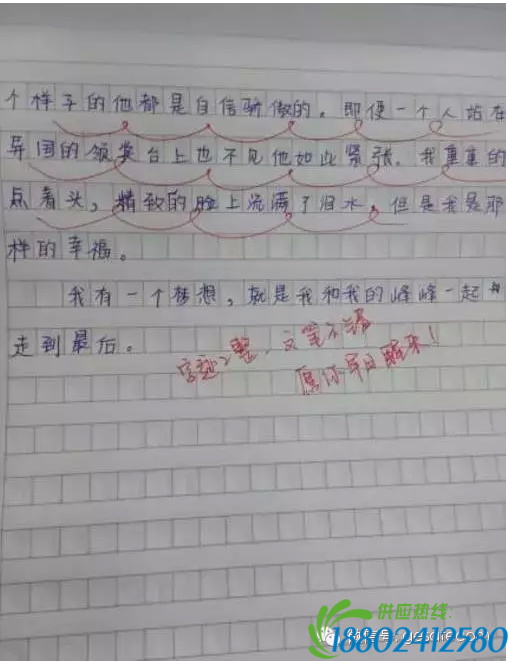 个样子的他都是自信骄傲的。即便一个人站在
异国的领奖台上也不见他如此紧张。我重重的
点着头，精致的脸上流满了泪水，但是我是那
样的幸福。
我有一个梦想，就是我和我的峰峰一起
走到最后。
字迹工整，文笔不错
愿你早日醒来！
供应热线
微信号:
18802412580